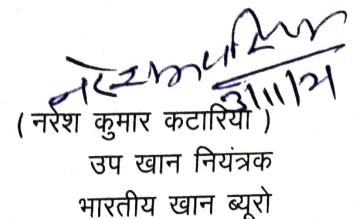 ( नरेश कुमार कटारिया )
उप खान नियंत्रक
भारतीय खान ब्यूरो